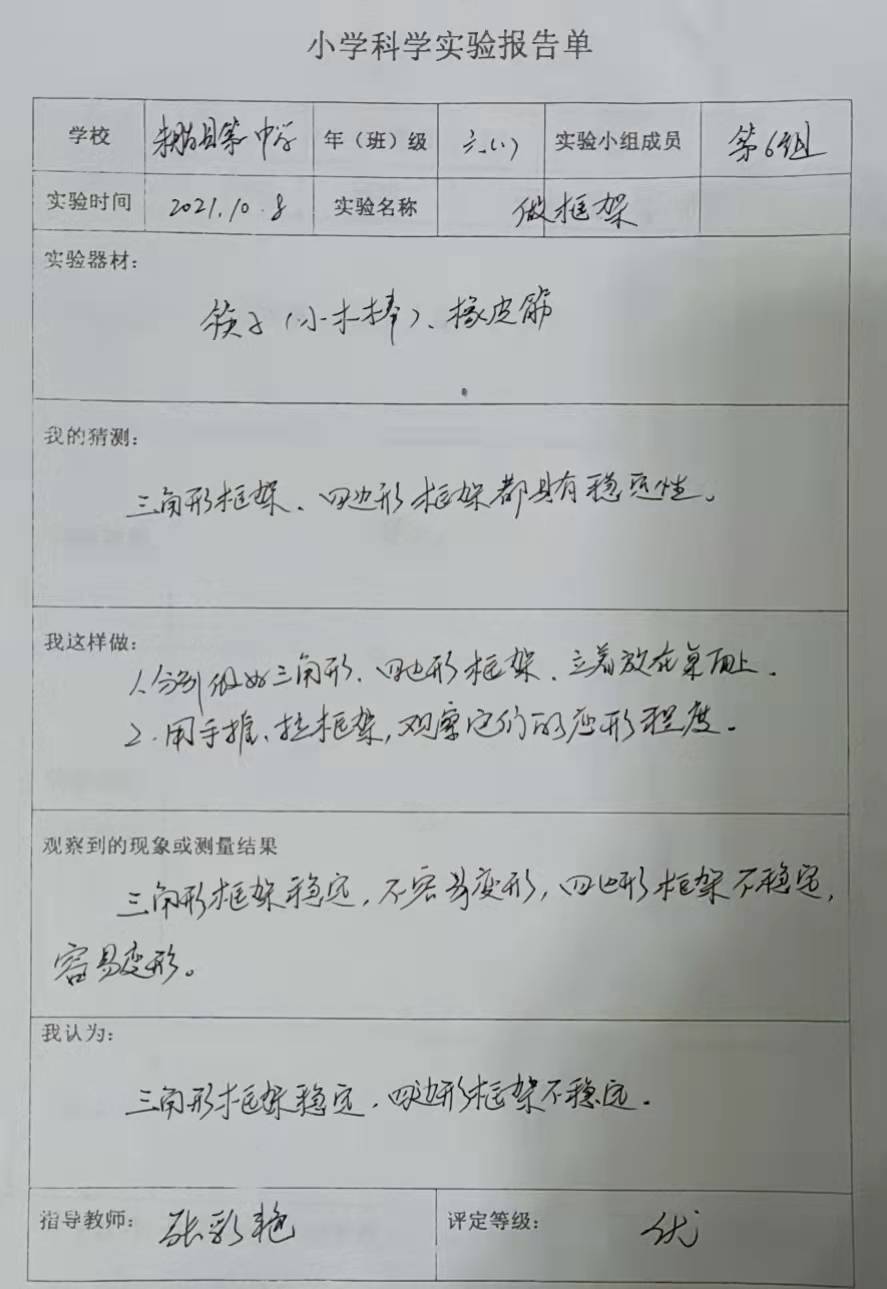 小学科学实验报告单
学校 县第 中学 年（班）级 六（1） 实验小组成员 第6组
实验时间 2021.10.8 实验名称 做框架
实验器材：
筷子（小木棒）、橡皮筋
我的猜测：
三角形框架、四边形框架都具有稳定性。
我这样做：
1.分别做好三角形、四边形框架、立着放在桌面上.
2.用手推、拉框架,观察它们的变形程度.
观察到的现象或测量结果
三角形框架稳定,不容易变形,四边形框架不稳定,
容易变形。
我认为：
三角形框架稳定.四边形框架不稳定.
指导教师： 张彩艳 评定等级： 优